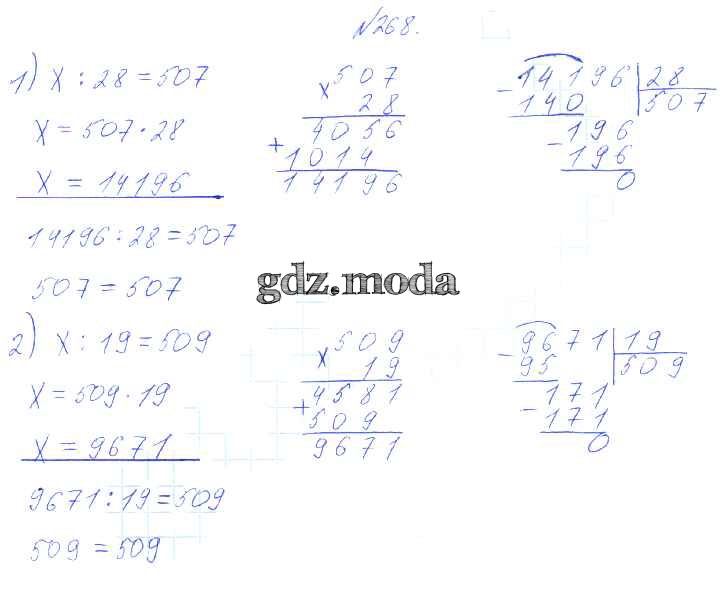 №268.
1) x : 28 = 507
x = 507 · 28
x = 14196
14196 : 28 = 507
507 = 507
× 507
28
+ 4056
1014
14196
- 14196 | 28
140 | 507
- 196
196
0
gdz.moda
2) x : 19 = 509
x = 509 · 19
x = 9671
9671 : 19 = 509
509 = 509
× 509
19
+ 4581
509
9671
- 9671 | 19
95 | 509
- 171
171
0